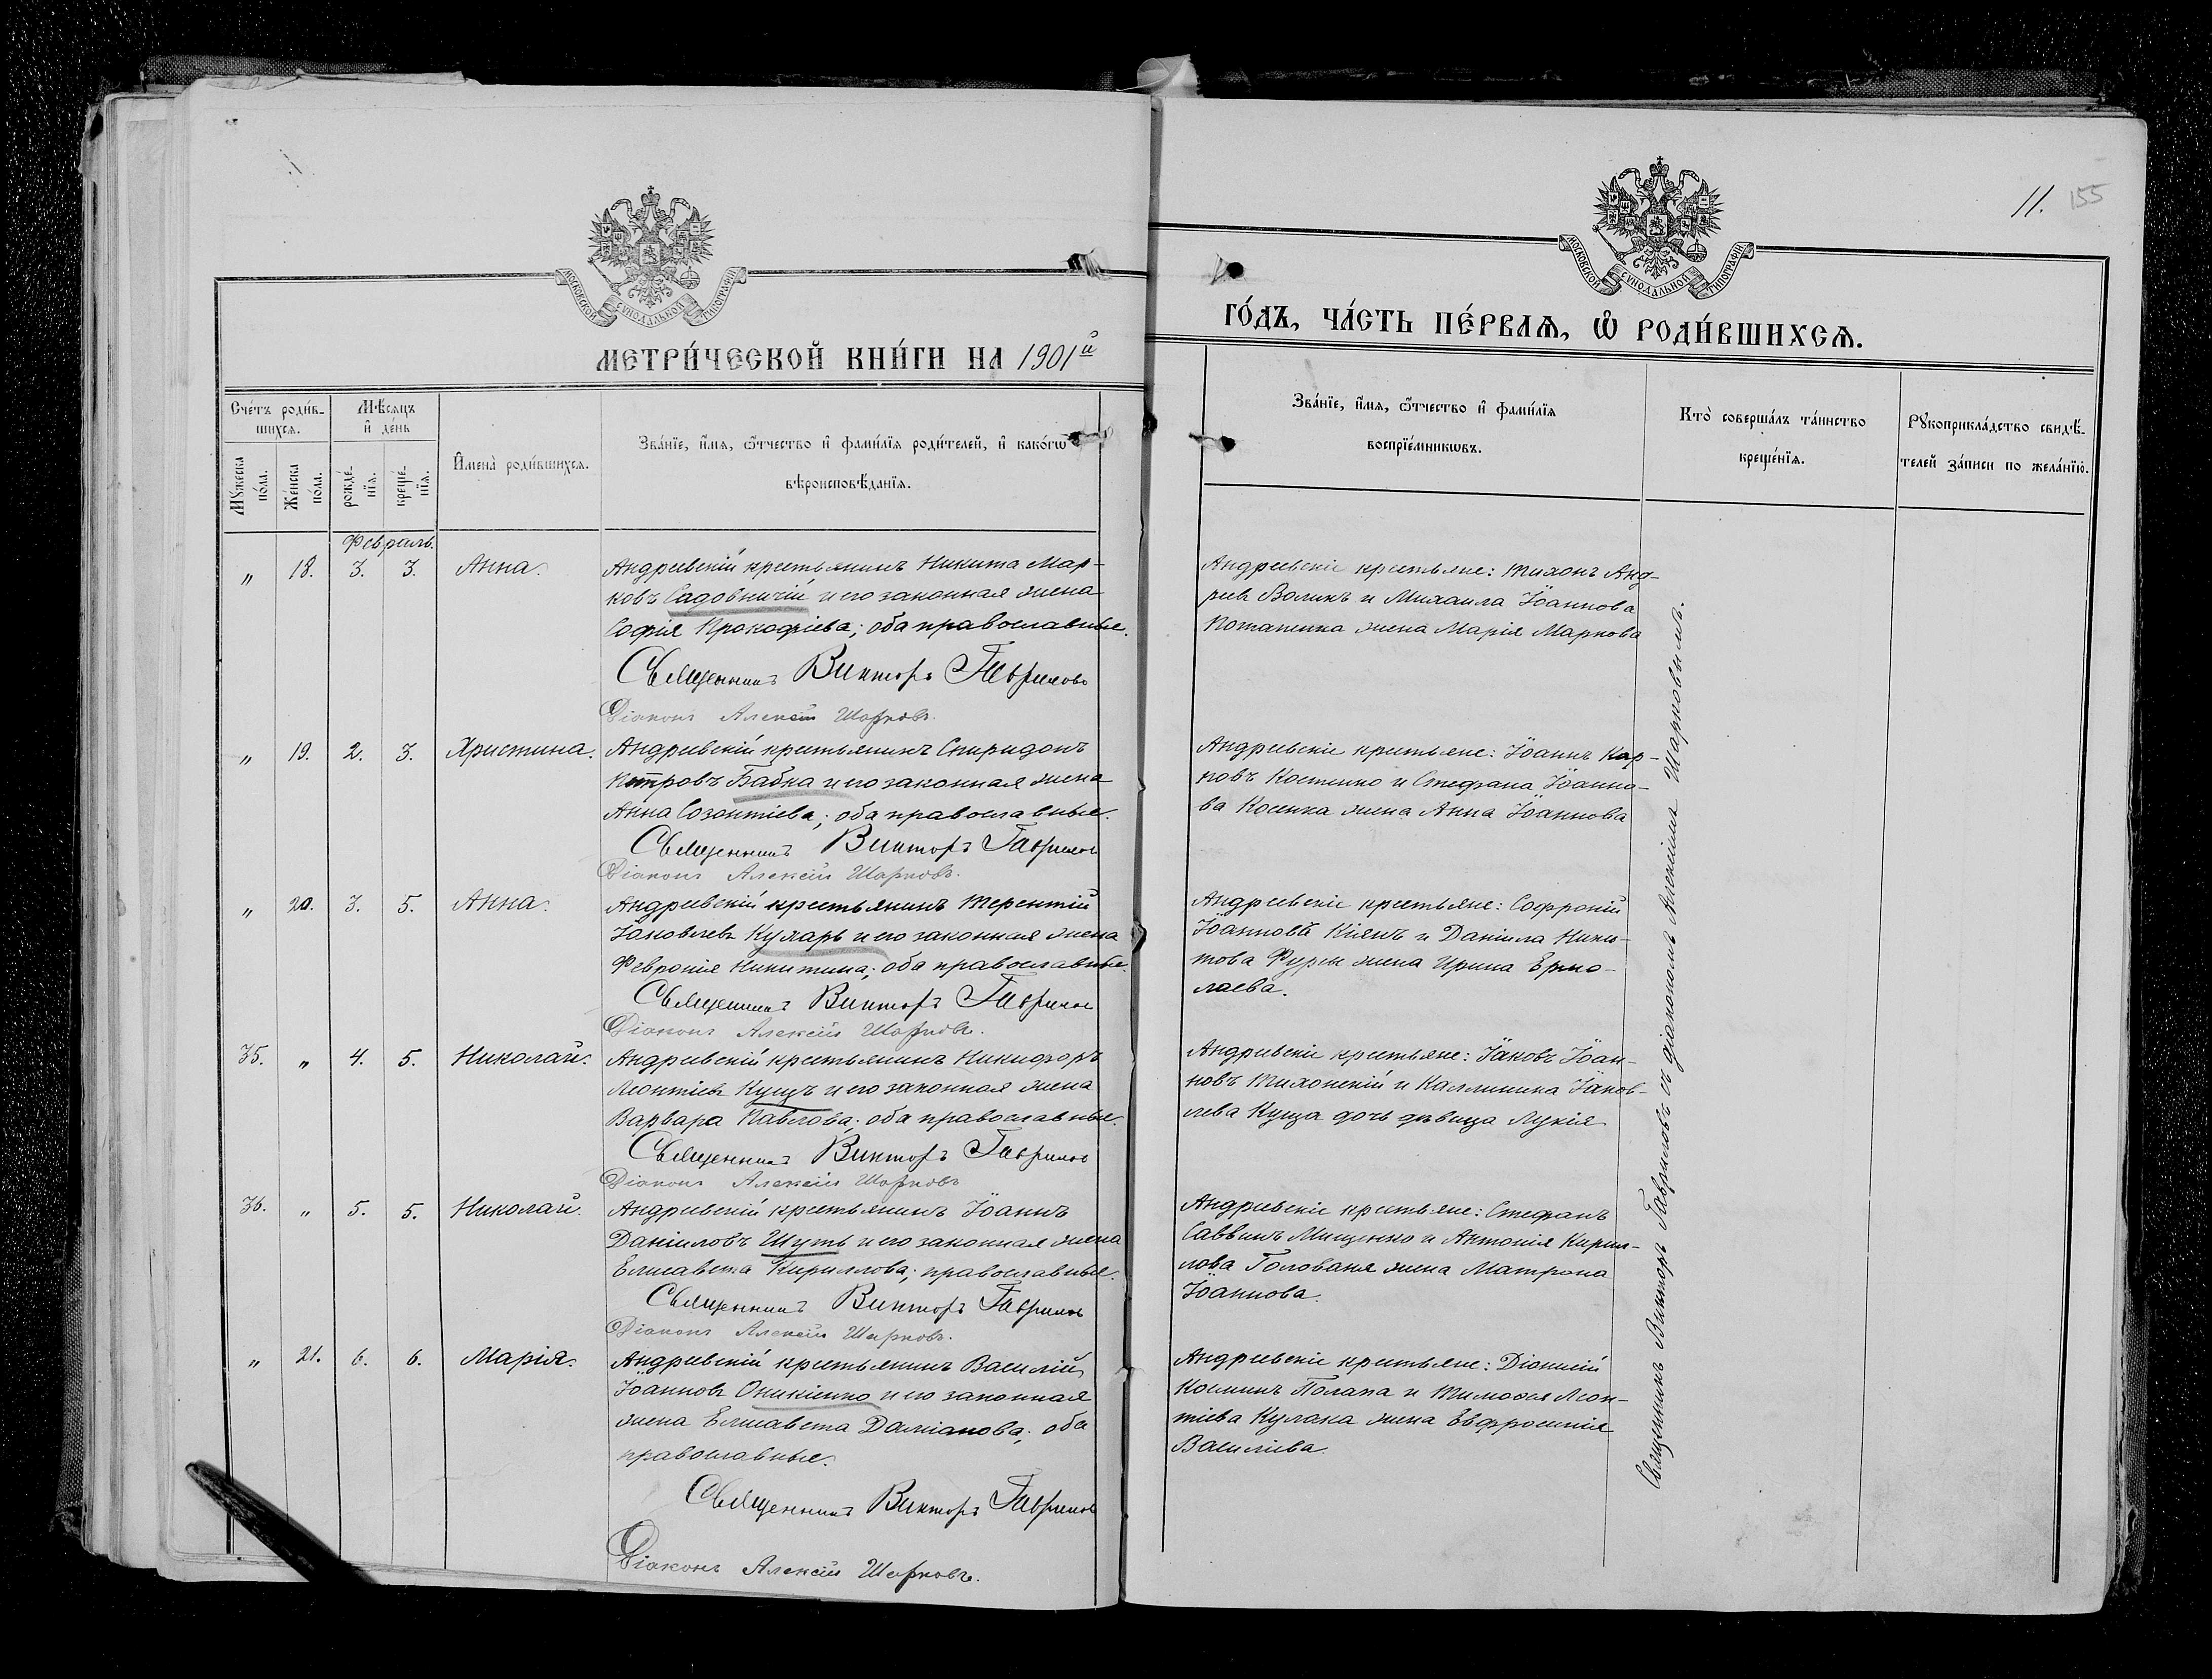 11. 155
МОСКОВСКОЙ СѴНОДАЛЬНОЙ ТИПОГРАФІИ
МОСКОВСКОЙ СѴНОДАЛЬНОЙ ТИПОГРАФІИ
МЕТРИ́ЧЕСКОЙ КНИ́ГИ НА 1901й
ГО́ДЪ, ЧА́СТЬ ПЕ́РВАѦ, Ѽ РОДИ́ВШИХСѦ.
Сче́тъ роди́в-
шихсѧ.
Мꙋ́жеска
по́ла.
Же́нска
по́ла.
Мѣ́сѧцъ
и҆ де́нь
рожде́-
нїѧ.
креще́-
нїѧ.
И҆мена̀ роди́вшихсѧ.
Зва́нїе, и҆́мѧ, ѻ҆́тчество и҆ фами́лїѧ роди́телей, и҆ како́гѡ
вѣроисповѣ́данїѧ.
Зва́нїе, и҆́мѧ, ѻ҆́тчество и҆ фами́лїѧ
воспрїе́мникѡвъ.
Кто̀ соверша́лъ та́инство
креще́нїѧ.
Рꙋкоприкла́дство свидѣ́-
телей за́писи по жела́нїю.
Февраль.
" 18. 3. 3. Анна.
Андреевскій крестьянинъ Никита Мар-
ковъ Садовничій и его законная жена
Софія Прокофіева; оба православные.
Священникъ Викторъ Гавриловъ
Діаконъ Алексій Шарковъ.
Андреевскіе крестьяне: Тихонъ Анд-
реевъ Воликъ и Михаила Іоаннова
Потапенка жена Марія Маркова
" 19. 2. 3. Христина.
Андреевскій крестьянинъ Спиридонъ
Петровъ Бабка и его законная жена
Анна Созонтіева; оба православные.
Священникъ Викторъ Гавриловъ
Діаконъ Алексій Шарковъ.
Андреевскіе крестьяне: Іоаннъ Кар-
повъ Костенко и Стефана Іоанно-
ва Косенка жена Анна Іоаннова
" 20. 3. 5. Анна.
Андреевскій крестьянинъ Терентій
Іаковлевъ Кухарь и его законная жена
Феvронія Никитина; оба православные.
Священникъ Викторъ Гавриловъ
Діаконъ Алексій Шарковъ.
Андреевскіе крестьяне: Софроній
Іоанновъ Кіянъ и Даніила Ники-
това Фурсы жена Ирина Ермо-
лаева.
35. " 4. 5. Николай.
Андреевскій крестьянинъ Никифоръ
Леонтіевъ Куцъ и его законная жена
Варвара Павлова; оба православные.
Священникъ Викторъ Гавриловъ
Діаконъ Алексій Шарковъ
Андреевскіе крестьяне: Іаковъ Іоан-
новъ Тихонскій и Каллиника Іаков-
лева Куца дочь дѣвица Лукія
36. " 5. 5. Николай.
Андреевскій крестьянинъ Іоаннъ
Даніиловъ Шуть и его законная жена
Елисавета Кириллова; православные.
Священникъ Викторъ Гавриловъ
Діаконъ Алексій Шарковъ.
Андреевскіе крестьяне: Стефанъ
Саввинъ Мищенко и Антонія Кирил-
лова Голованя жена Матрона
Іоаннова.
" 21. 6. 6. Марія.
Андреевскій крестьянинъ Василій
Іоанновъ Оникіенко и его законная
жена Елисавета Даміанова; оба
православные.
Священникъ Викторъ Гавриловъ
Діаконъ Алексій Шарковъ.
Андреевскіе крестьяне: Діонисій
Косминъ Полапа и Тимоѳея Леон-
тіева Кулака жена Евфросинія
Василіева.
Священникъ Викторъ Гавриловъ съ діакономъ Алексіемъ Шарковымъ.